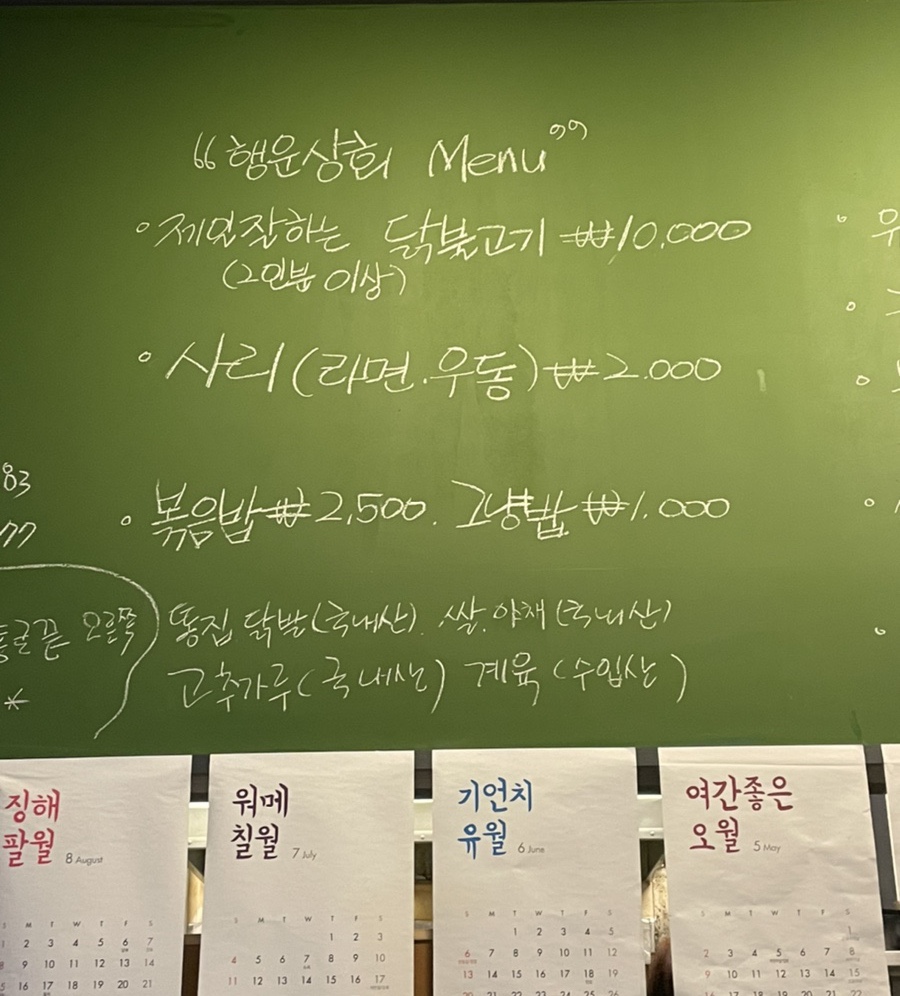 “행운상회 Menu”
• 제일잘하는 닭불고기 ₩10,000
(2인분 이상)
• 사리 (라면.우동) ₩2.000
• 볶음밥 ₩2,500. 그냥밥 ₩1.000
똥집 닭발(국내산). 쌀.야채(국내산)
고추가루(국내산) 계육 (수입산)
83
77
오른쪽
*
징해
팔월 8 August
S M T W T F S
1 2 3 4 5 6 7
8 9 10 11 12 13 14
15 16 17 18 19 20 21
워메
칠월 7 July
S M T W T F S
1 2 3
4 5 6 7 8 9 10
11 12 13 14 15 16 17
기언치
유월 6 June
S M T W T F S
1 2 3 4 5
6 7 8 9 10 11 12
13 14 15 16 17 18 19
20 21 22 23 24 25 26
여간좋은
오월 5 May
S M T W T F S
1
2 3 4 5 6 7 8
9 10 11 12 13 14 15
16 17 18 19 20 21 22